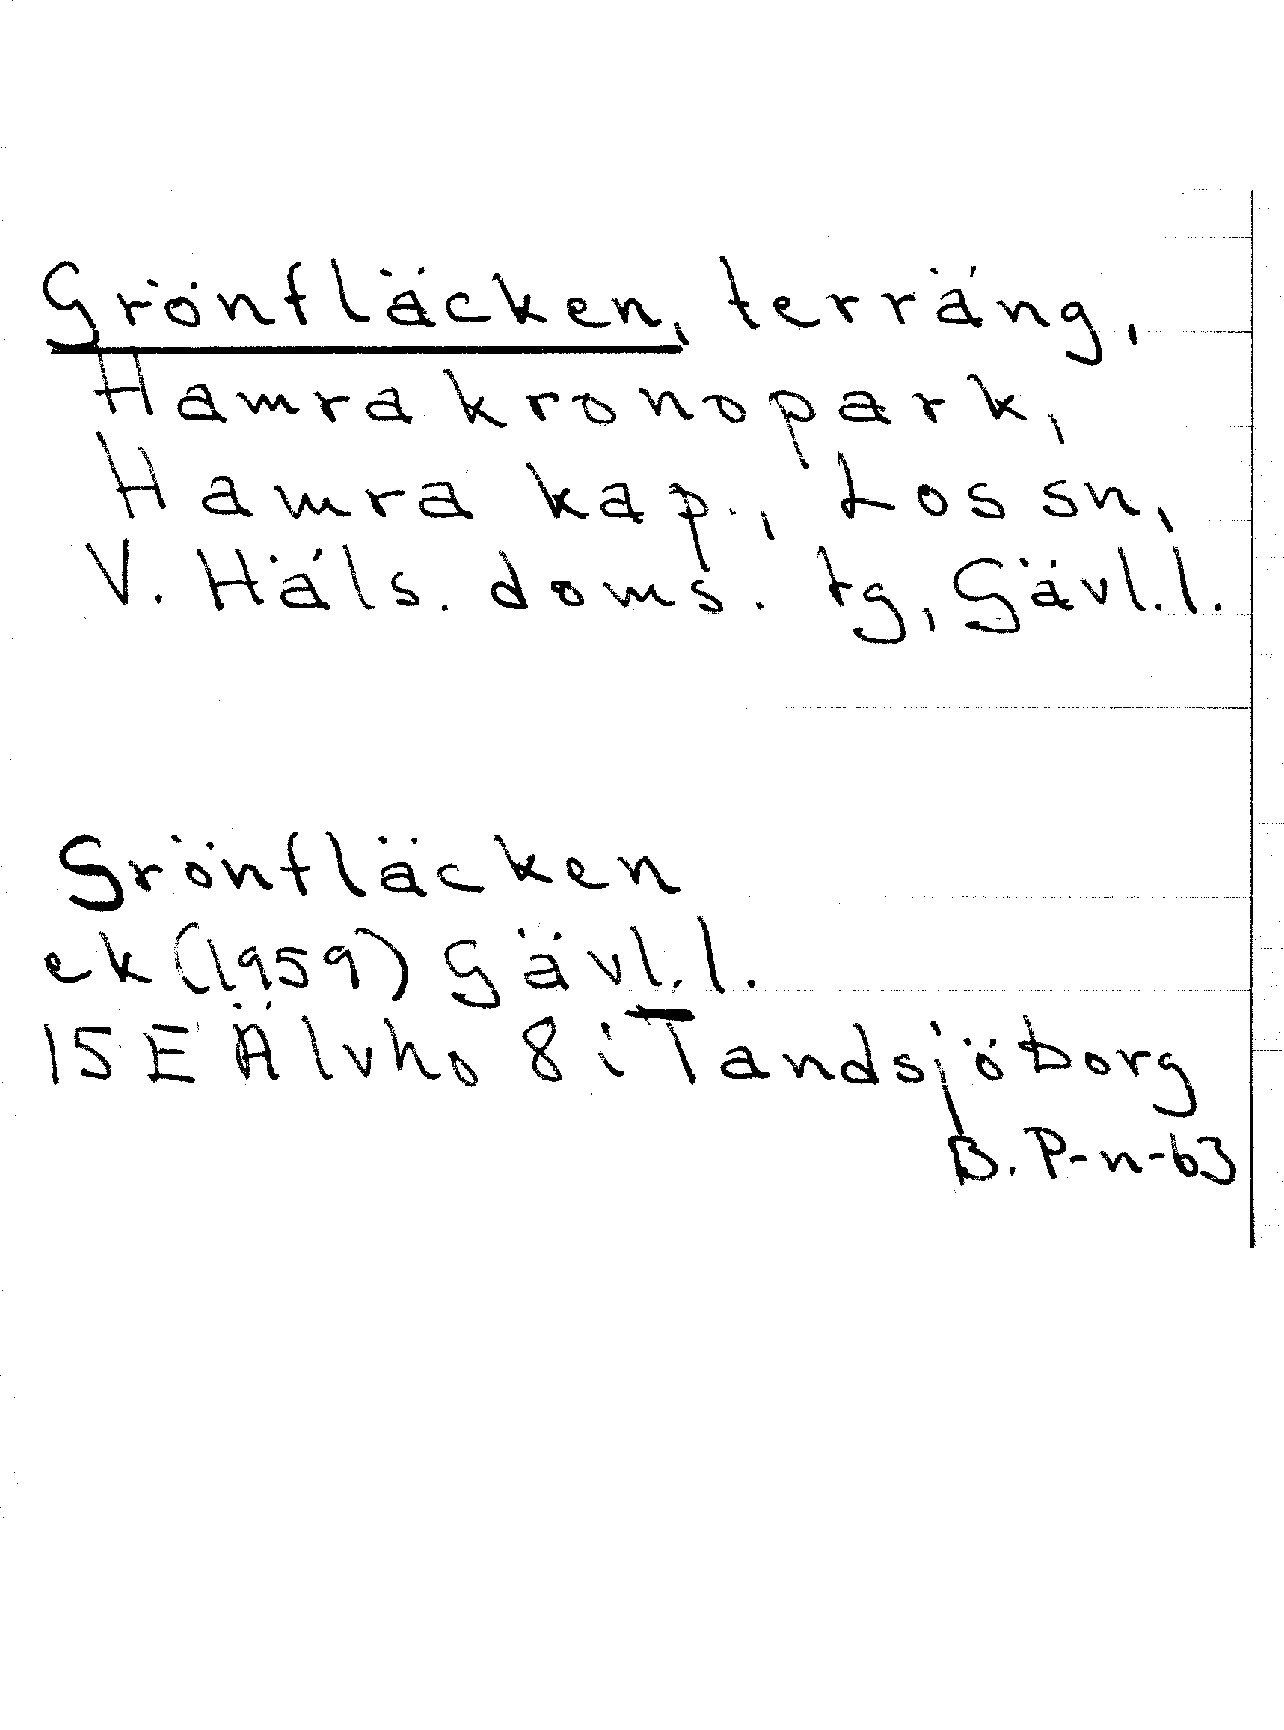 Grönfläcken, terräng,
Hamra kronopark,
Hamra kap., Los sn,
V. Häls. doms. tg, Gävl.l.
Grönfläcken
ek (1959) Gävl.l.
15 E Älvho 8 i Tandsjöborg
B. P-n-63